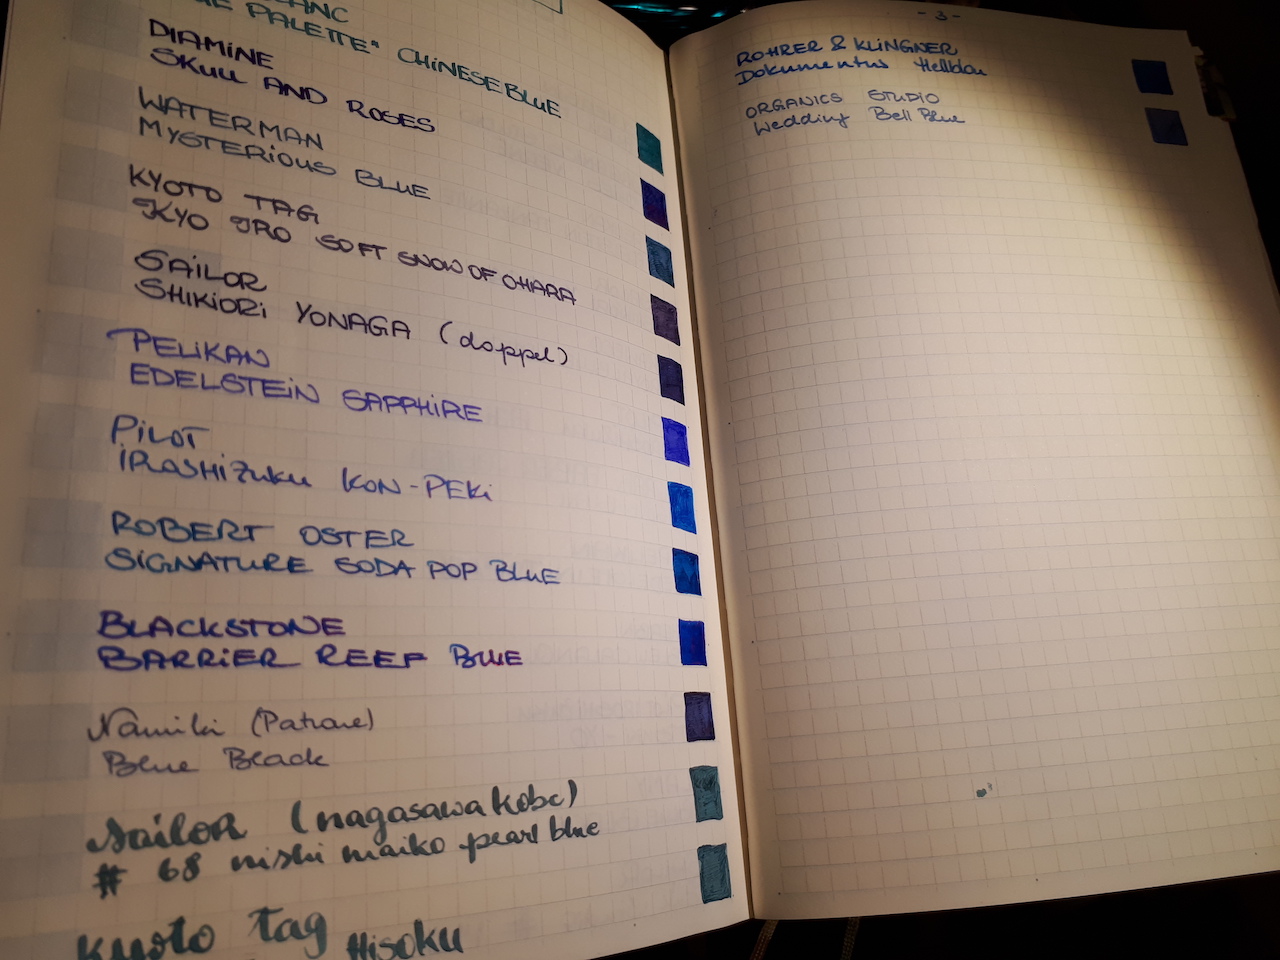 BLANC
PALETTE" CHINESE BLUE
DIAMINE
SKULL AND ROSES
WATERMAN
MYSTERIOUS BLUE
KYOTO TAG
KYO IRO SOFT SNOW OF OHARA
SAILOR
SHIKIORI YONAGA (doppel)
PELIKAN
EDELSTEIN SAPPHIRE
PILOT
IROSHIZUKU KON-PEKI
ROBERT OSTER
SIGNATURE SODA POP BLUE
BLACKSTONE
BARRIER REEF BLUE
Namiki (Patrone)
Blue Black
Sailor (nagasawa kobe)
# 68 nishi maiko pearl blue
Kyoto tag
Hisoku
- 3 -
ROHRER & KLINGNER
Dokumentus Hellblau
ORGANICS STUDIO
Wedding Bell Blue